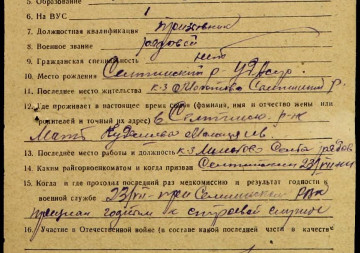 5. Образование
6. На ВУС 1
7. Должностная квалификация призывник
8. Военное звание рядовой
9. Гражданская специальность нет
10. Место рождения Селтинский р. УдАсср.
11. Последнее место жительства к-з Молотова Селтинский р.
12. Где проживает в настоящее время семья (фамилия, имя и отчество жены или
родителей и точный их адрес) в Селтинском р-не
Мать
13. Последнее место работы и должность к-з Молотова Селта рядов.
14. Каким райгорвоенкоматом и когда призван Селтинским 23/
15. Когда и где проходил последний раз медкомиссию и результат годности к
военной службе 23/ при Селтинском РВК
признан годным к строевой службе
16. Участие в Отечественной войне (в составе какой последней части в качестве